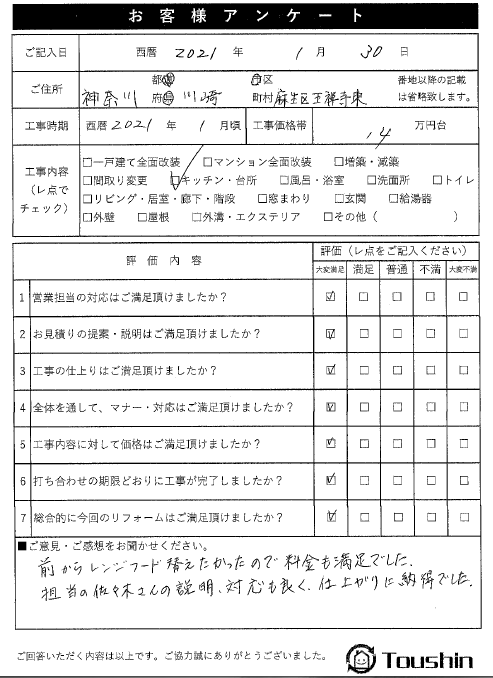 お客様アンケート
ご記入日 西暦 2021 年 1 月 30 日
ご住所 神奈川 都道府県 川崎 市区町村 麻生区王禅寺東 番地以降の記載は省略致します。
工事時期 西暦 2021 年 1 月頃 工事価格帯 14 万円台
工事内容（レ点でチェック）
□一戸建て全面改装 □マンション全面改装 □増築・減築
□間取り変更 ☑キッチン・台所 □風呂・浴室 □洗面所 □トイレ
□リビング・居室・廊下・階段 □窓まわり □玄関 □給湯器
□外壁 □屋根 □外溝・エクステリア □その他（ ）
評価内容 評価（レ点をご記入ください）
大変満足 満足 普通 不満 大変不満
1 営業担当の対応はご満足頂けましたか？ ☑ □ □ □ □
2 お見積りの提案・説明はご満足頂けましたか？ ☑ □ □ □ □
3 工事の仕上りはご満足頂けましたか？ ☑ □ □ □ □
4 全体を通して、マナー・対応はご満足頂けましたか？ ☑ □ □ □ □
5 工事内容に対して価格はご満足頂けましたか？ ☑ □ □ □ □
6 打ち合わせの期限どおりに工事が完了しましたか？ ☑ □ □ □ □
7 総合的に今回のリフォームはご満足頂けましたか？ ☑ □ □ □ □
■ご意見・ご感想をお聞かせください。
前からレンジフード替えたかったので料金も満足でした。
担当の佐々木さんの説明、対応も良く、仕上がりに納得でした。
ご回答いただく内容は以上です。ご協力誠にありがとうございました。 Toushin